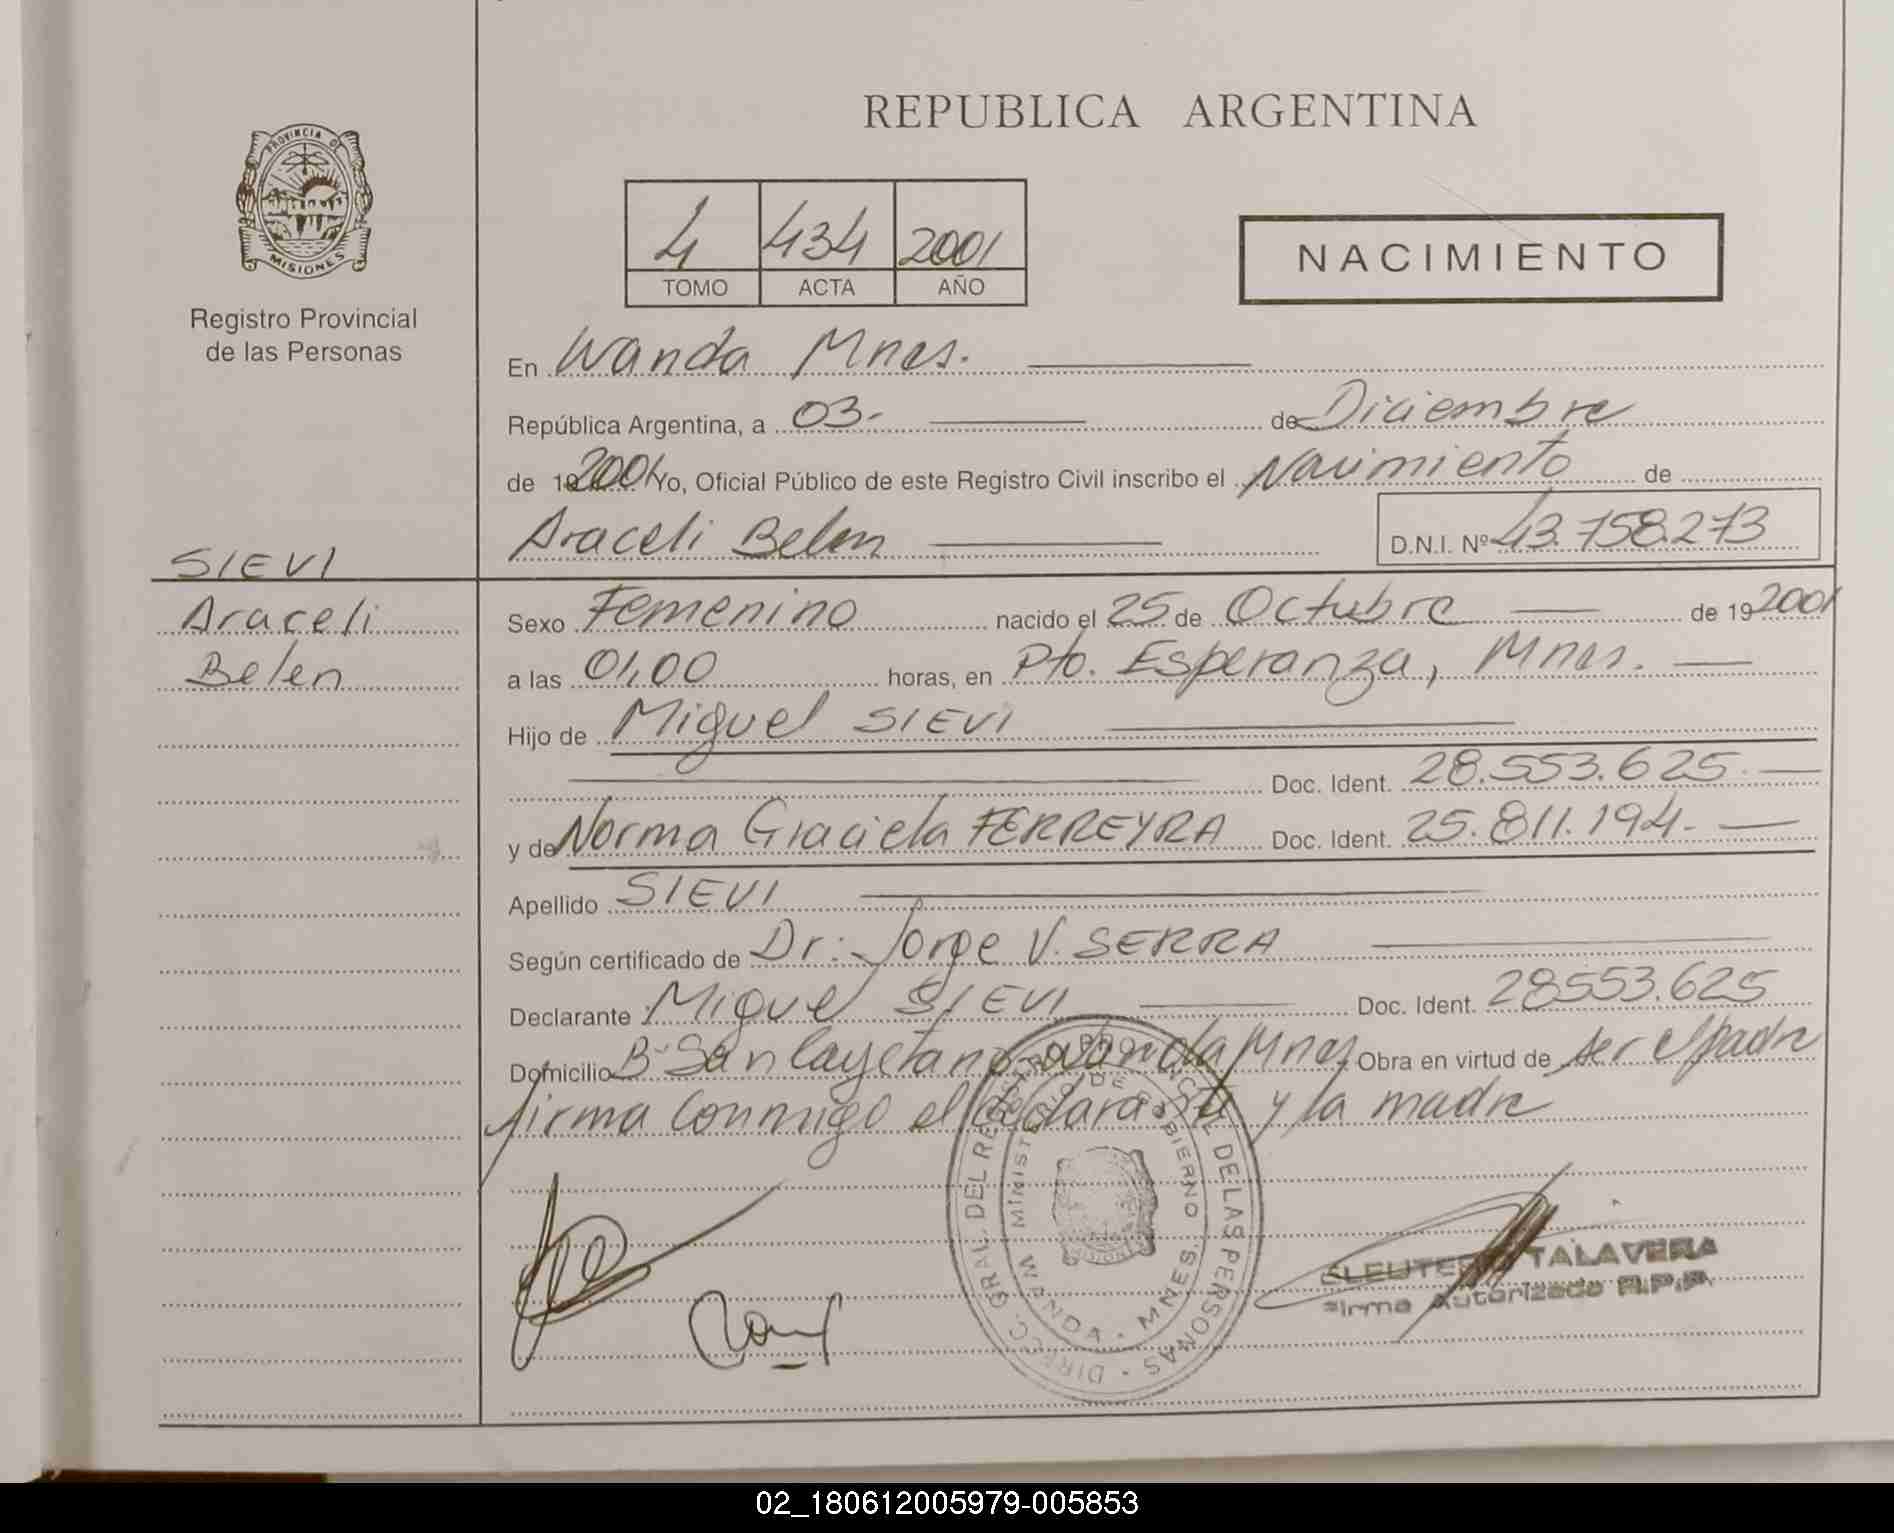 REPUBLICA ARGENTINA
PROVINCIA DE
MISIONES
Registro Provincial
de las Personas
4 434 2001
TOMO ACTA AÑO
NACIMIENTO
En Wanda Mnes.
República Argentina, a 03- de Diciembre
de 19 2001 Yo, Oficial Público de este Registro Civil inscribo el Nacimiento de
Araceli Belen D.N.I. Nº 43.758.273
SIEVI
Araceli
Belen
Sexo Femenino nacido el 25 de Octubre de 19 2001
a las 01,00 horas, en Pto. Esperanza, Mnes.
Hijo de Miguel SIEVI
Doc. Ident. 28.553.625.
y de Norma Graciela FERREYRA Doc. Ident. 25.811.194.
Apellido SIEVI
Según certificado de Dr: Jorge V. SERRA
Declarante Miguel SIEVI Doc. Ident. 28553.625
Domicilio Bº San Cayetano-Wanda Mnes Obra en virtud de ser el padre
firma conmigo el declarante y la madre
DIRECC. GRAL. DEL REGISTRO PROVINCIAL DE LAS PERSONAS
MINISTERIO DE GOBIERNO
WANDA - MNES.
ELEUTERIO TALAVERA
Firma Autorizada R.P.P.
02_180612005979-005853